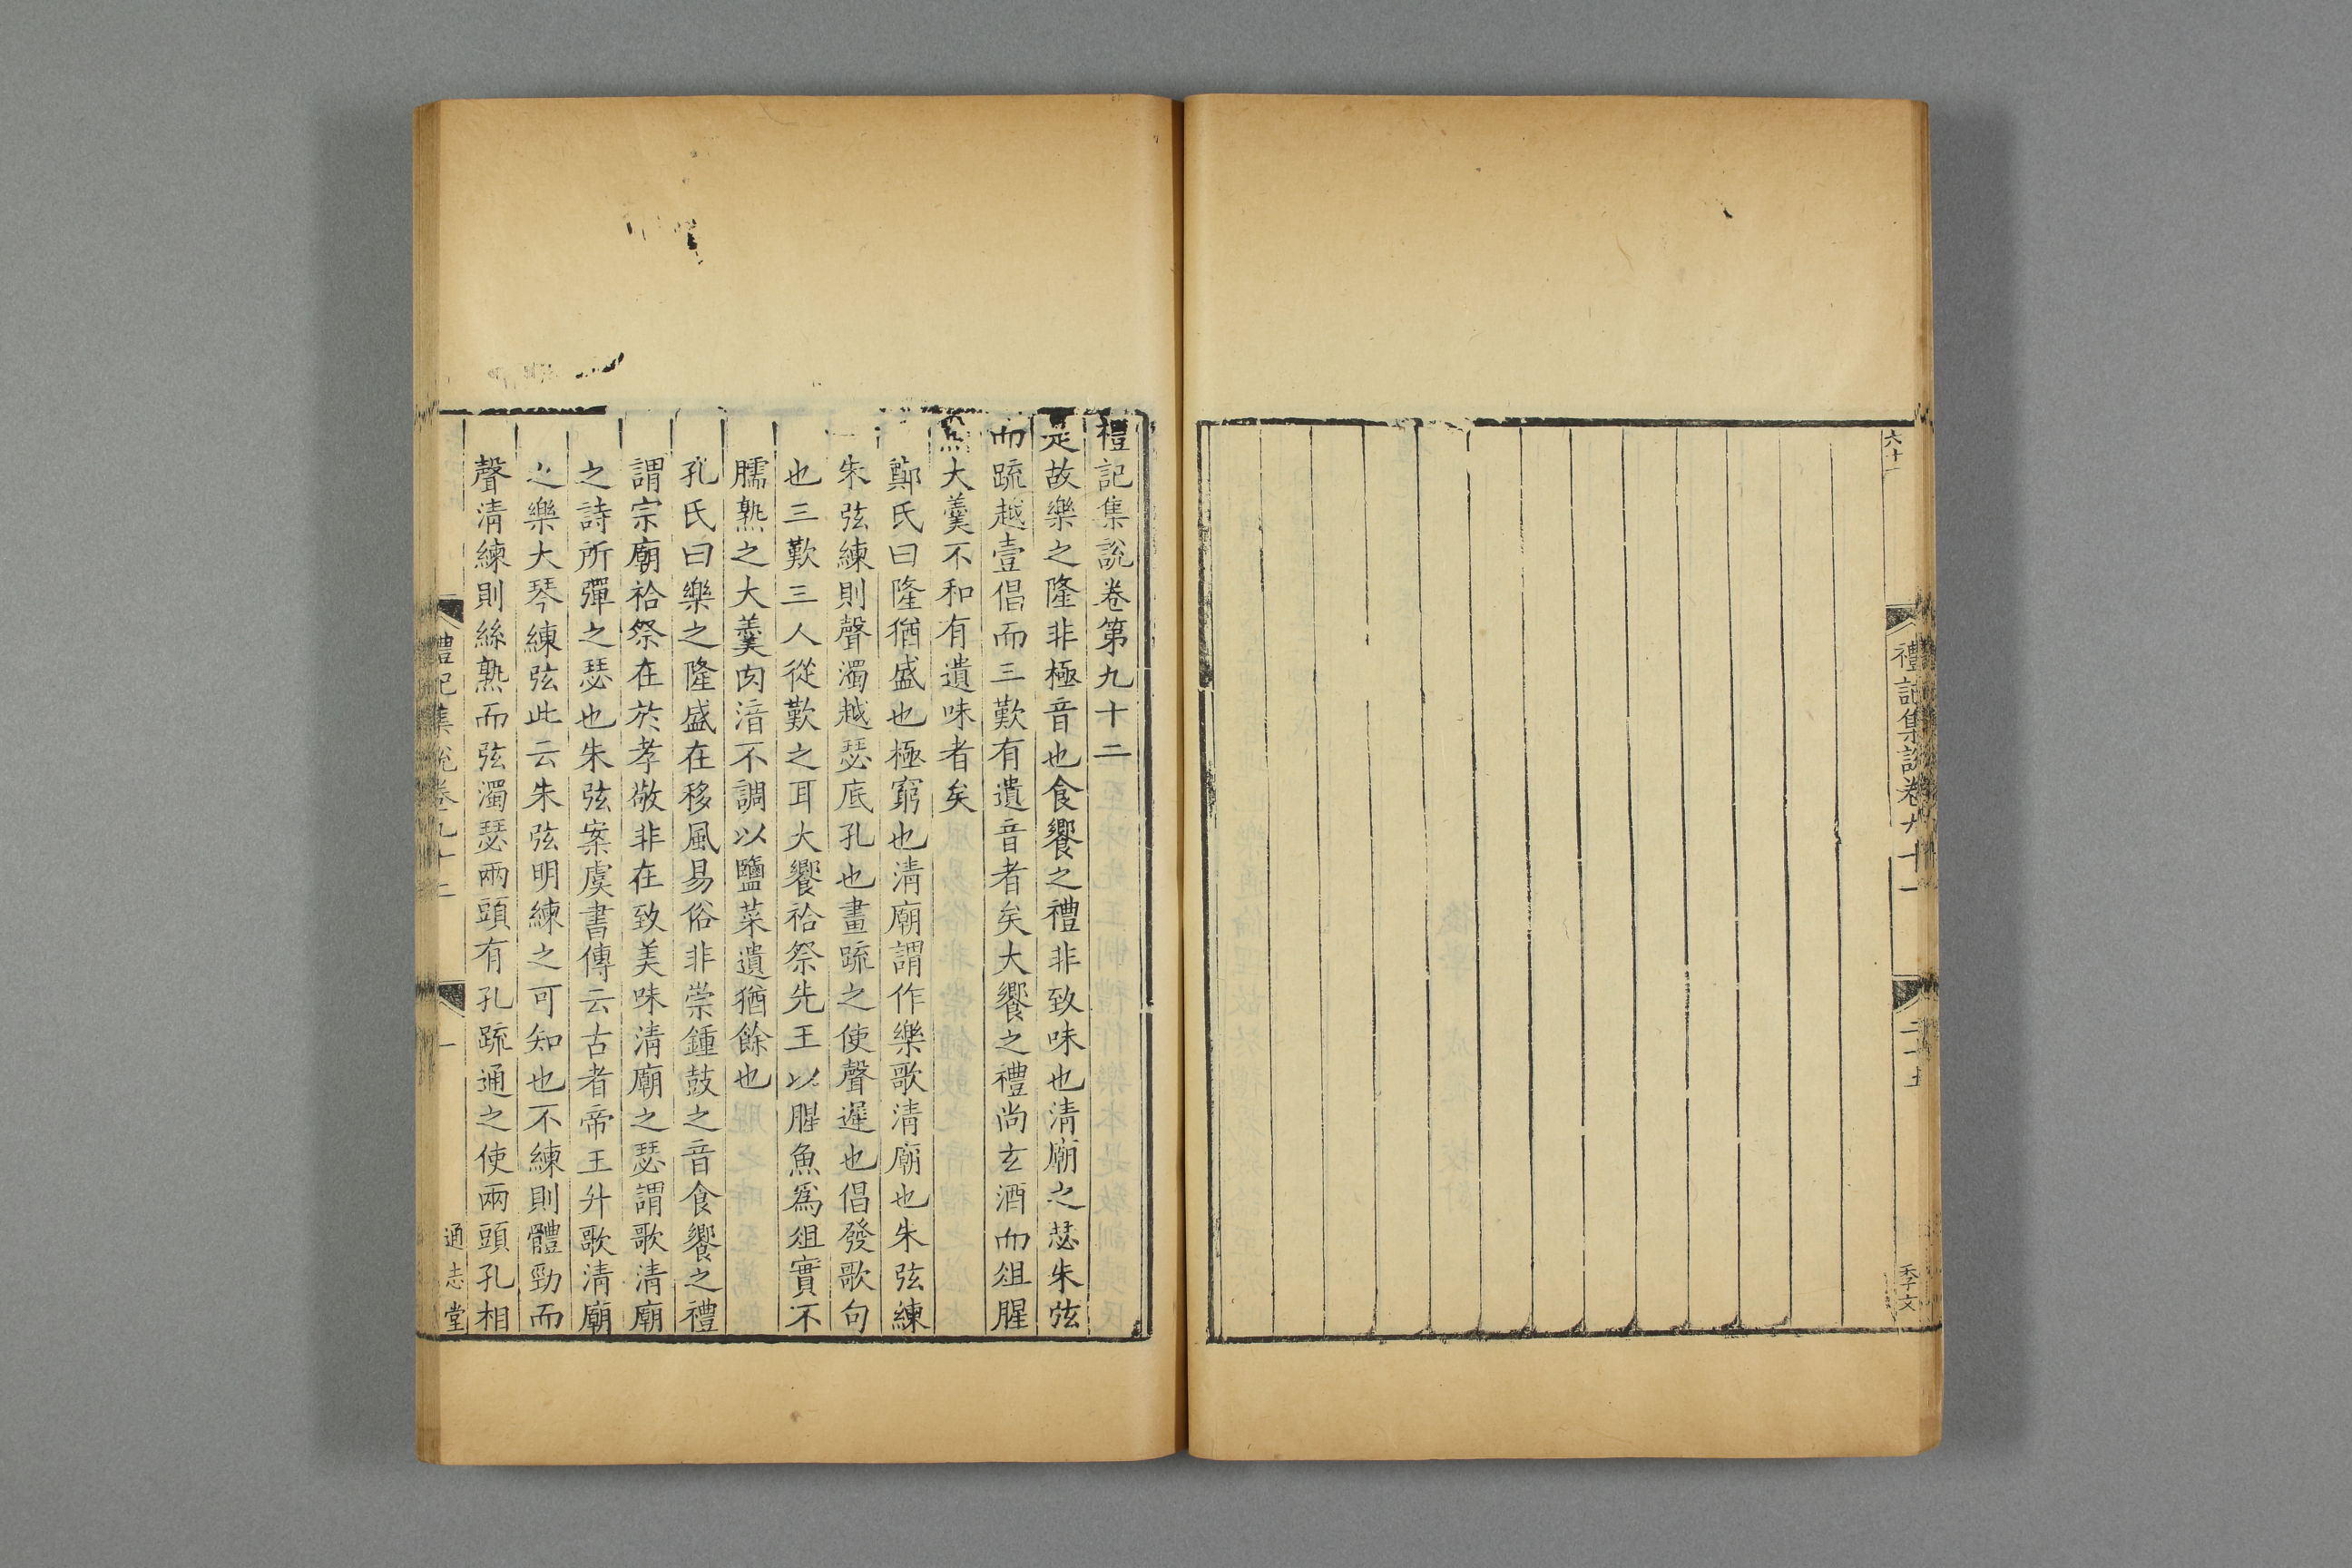 六十一
禮記集說卷九十一
二十五
季文
禮記集說卷第九十二
是故樂之隆非極音也食饗之禮非致味也清廟之瑟朱弦
而疏越壹倡而三歎有遺音者矣大饗之禮尚玄酒而俎腥
魚大羹不和有遺味者矣
鄭氏曰隆猶盛也極窮也清廟謂作樂歌清廟也朱弦練
朱弦練則聲濁越瑟底孔也畫疏之使聲遲也倡發歌句
也三歎三人從歎之耳大饗祫祭先王以腥魚爲俎實不
臑熟之大羹肉湆不調以鹽菜遺猶餘也
孔氏曰樂之隆盛在移風易俗非崇鍾鼓之音食饗之禮
謂宗廟祫祭在於孝敬非在致美味清廟之瑟謂歌清廟
之詩所彈之瑟也朱弦案虞書傳云古者帝王升歌清廟
之樂大琴練弦此云朱弦明練之可知也不練則體勁而
聲清練則絲熟而弦濁瑟兩頭有孔疏通之使兩頭孔相
禮記集說卷九十二
一
通志堂